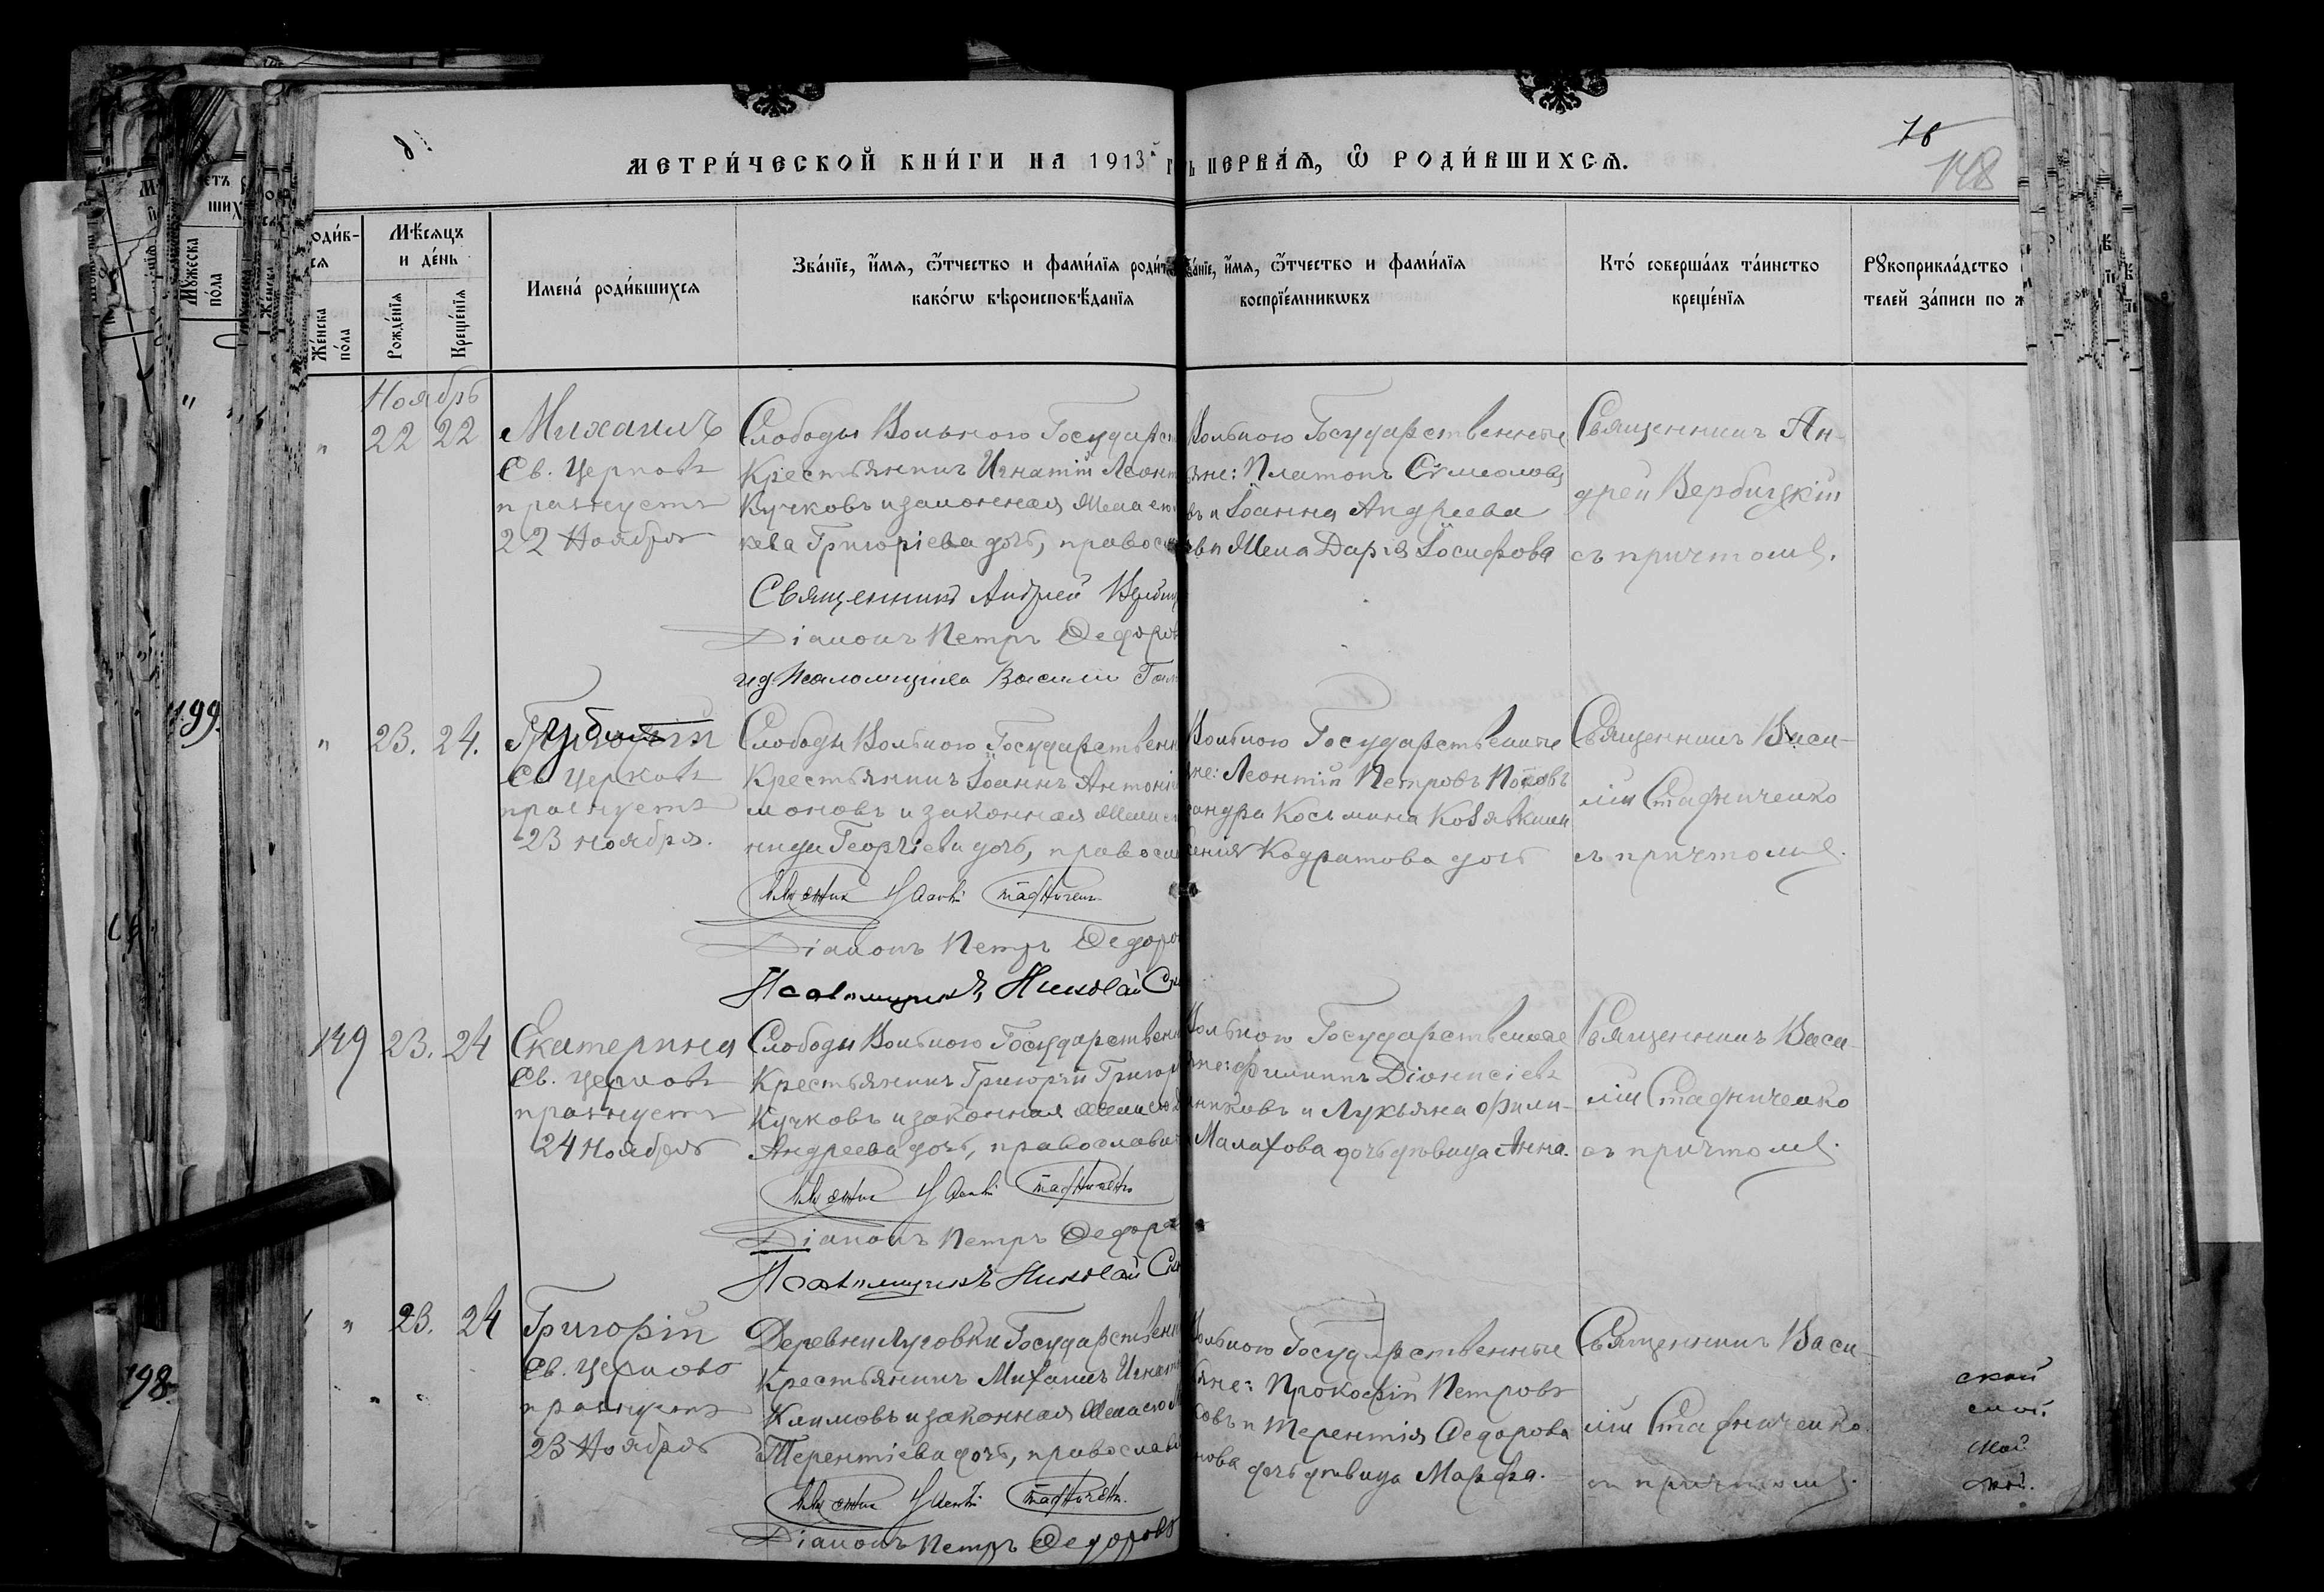 78
148
МЕТРИ́ЧЕСКОЙ КНИ́ГИ НА 1913й Г
Ъ ПЕРВА́Ѧ, Ѿ РОДИ́ВШИХСѦ.
оди́в-
сѧ
Мѣ́сѧцъ
и де́нь
Же́нска
по́ла
Рожде́нїѧ
Креще́нїѧ
Имена́ роди́вшихсѧ
Зва́нїе, и҆́мѧ, ѻ҆́тчество и фами́лїѧ роди́т
како́гѡ вѣроисповѣ́данїѧ
ва́нїе, и҆́мѧ, ѻ҆́тчество и фами́лїѧ
воспрїе́мникѡвъ
Кто́ соверша́лъ та́инство
креще́нїѧ
Рꙋкоприкла́дство
телей за́писи по ж
Ноябрь
" 22 22
Михаилъ
Св. Церковь
празнуетъ
22 Ноября
Слободы Вольного Государст
Крестьянинъ Игнатій Леонт
Кучковъ и законная жена его
Григоріева дочь, правосл
Священникъ Андрей Верби
Діаконъ Петръ Федоров
и. д. Псаломщика Василій
Вольного Государственные
яне: Платонъ Сѵмеоновъ
въ и Іоанна Андреева
жена Дарія Іосифова
Священникъ Ан-
дрей Вербицкій
съ причтомъ.
199.
" 23. 24.
Григорій
Св. Церковь
празнуетъ
23 ноября.
Слободы Вольного Государственн
Крестьянинъ Іоаннъ Антоні
моновъ и законная жена е
нида Георгіева дочь, правосла
Священникъ Василій Стадниченко
Діаконъ Петръ Федоро
Псаломщикъ Николай
Вольного Государственные
не: Леонтій Петровъ Поповъ
сандра Косьмина Козявкин
сенія Кодратова дочь
Священникъ Васи-
лій Стадниченко
съ причтомъ.
149 23. 24
Екатерина
Св. Церковь
празнуетъ
24 Ноября
Слободы Вольного Государственн
Крестьянинъ Григорій Григор
Кучковъ и законная жена его
Андреева дочь, православн
Священникъ Василій Стадниченко
Діаконъ Петръ Федоро
Псаломщикъ Николай
Вольного Государственные
яне: Филиппъ Діонисіевъ
никовъ и Лукьяна Фили-
Малахова дочь дѣвица Анна.
Священникъ Васи-
лій Стадниченко
съ причтомъ.
198.
" 23. 24
Григорій
Св. Церковь
празнуетъ
23 Ноября
Деревни Луговки Государственн
Крестьянинъ Михаилъ Игнат
Климовъ и законная жена его М
Терентіева дочь, православ
Священникъ Василій Стадниченко
Діаконъ Петръ Федоровъ
Вольного Государственные
яне: Прокофій Петровъ
ковъ и Терентія Федорова
нова дочь дѣвица Марфа.
Священникъ Васи-
лій Стадниченко
съ причтомъ.
ской